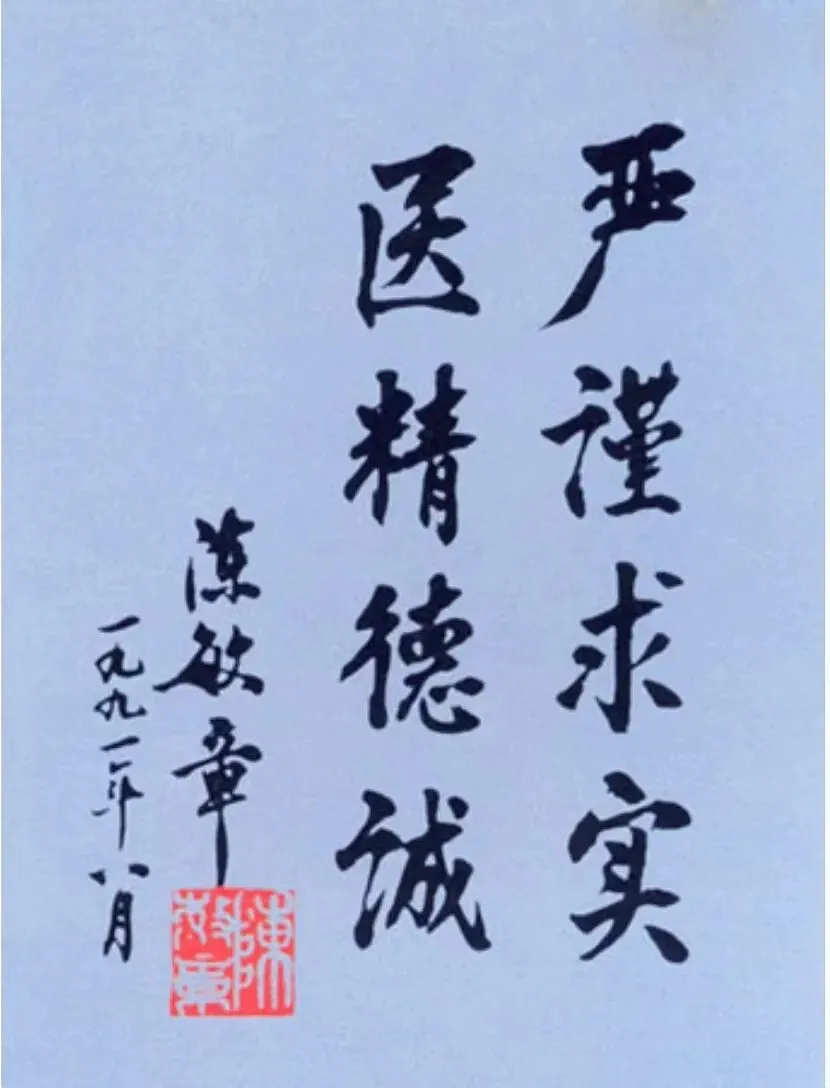 严谨求实
医精德诚
陈敏章
一九九一年八月
陳敏章